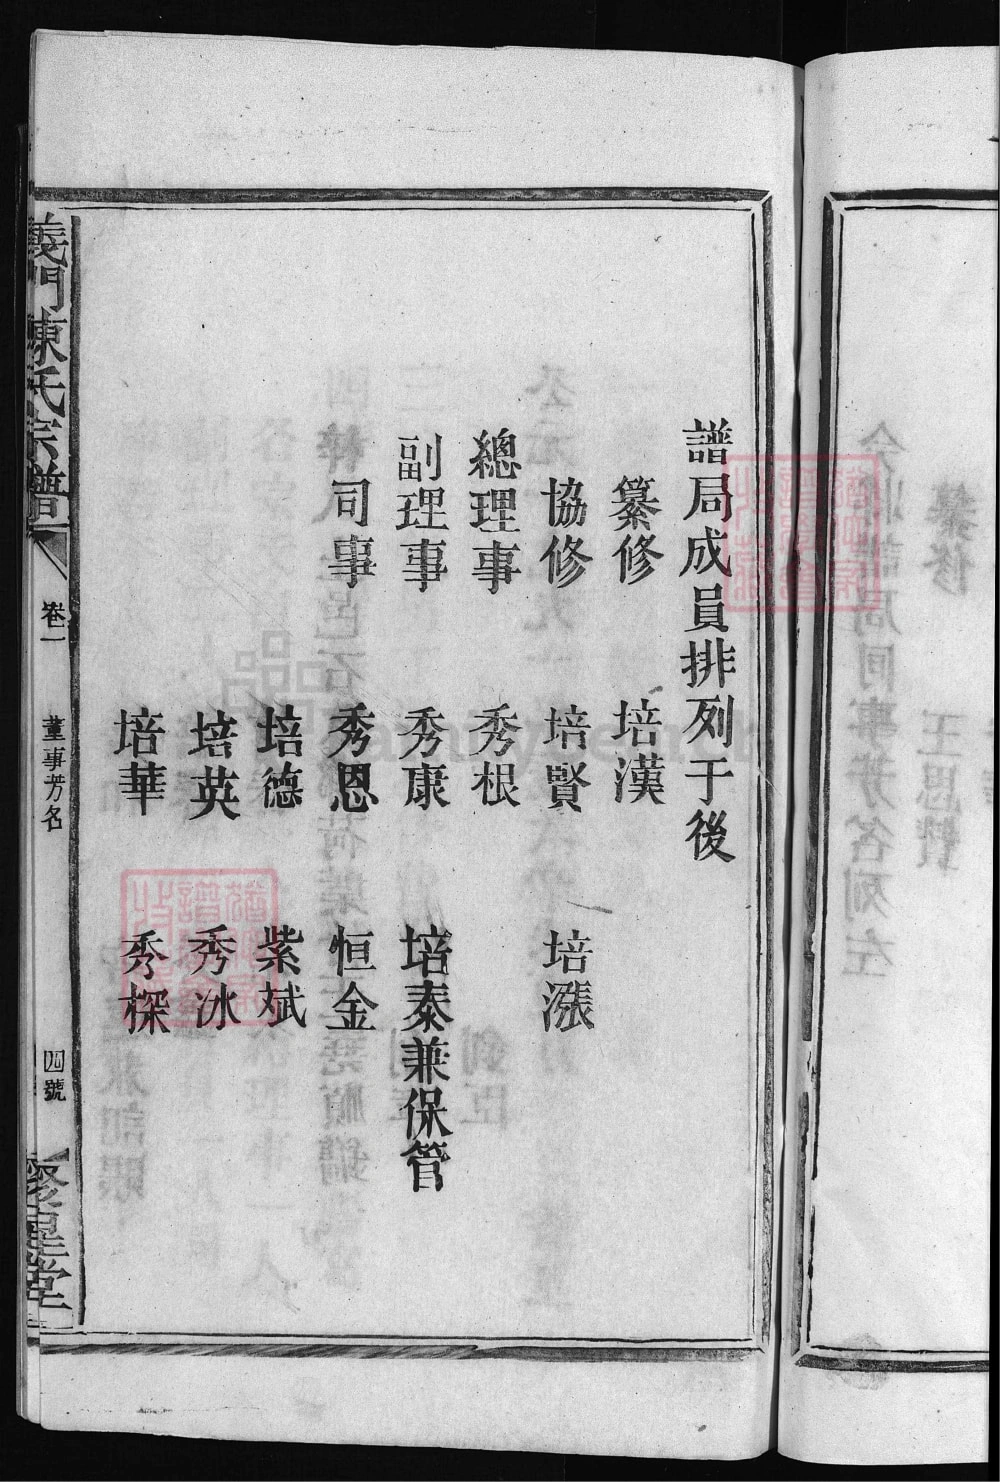 譜局成員排列于後
纂修 培漢
協修 培賢 培漲
總理事 秀根
副理事 秀康 培泰兼保管
司事 秀恩 恒金
培德 紫斌
培英 秀冰
培華 秀橾
義門陳氏宗譜 卷一 董事芳名 四號 聚星堂